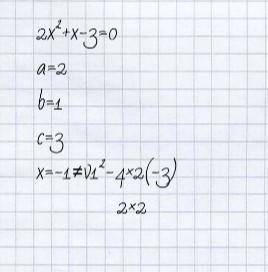 2x²+x-3=0
a=2
b=1
c=3
x=-1≠√1²-4×2(-3)
2×2